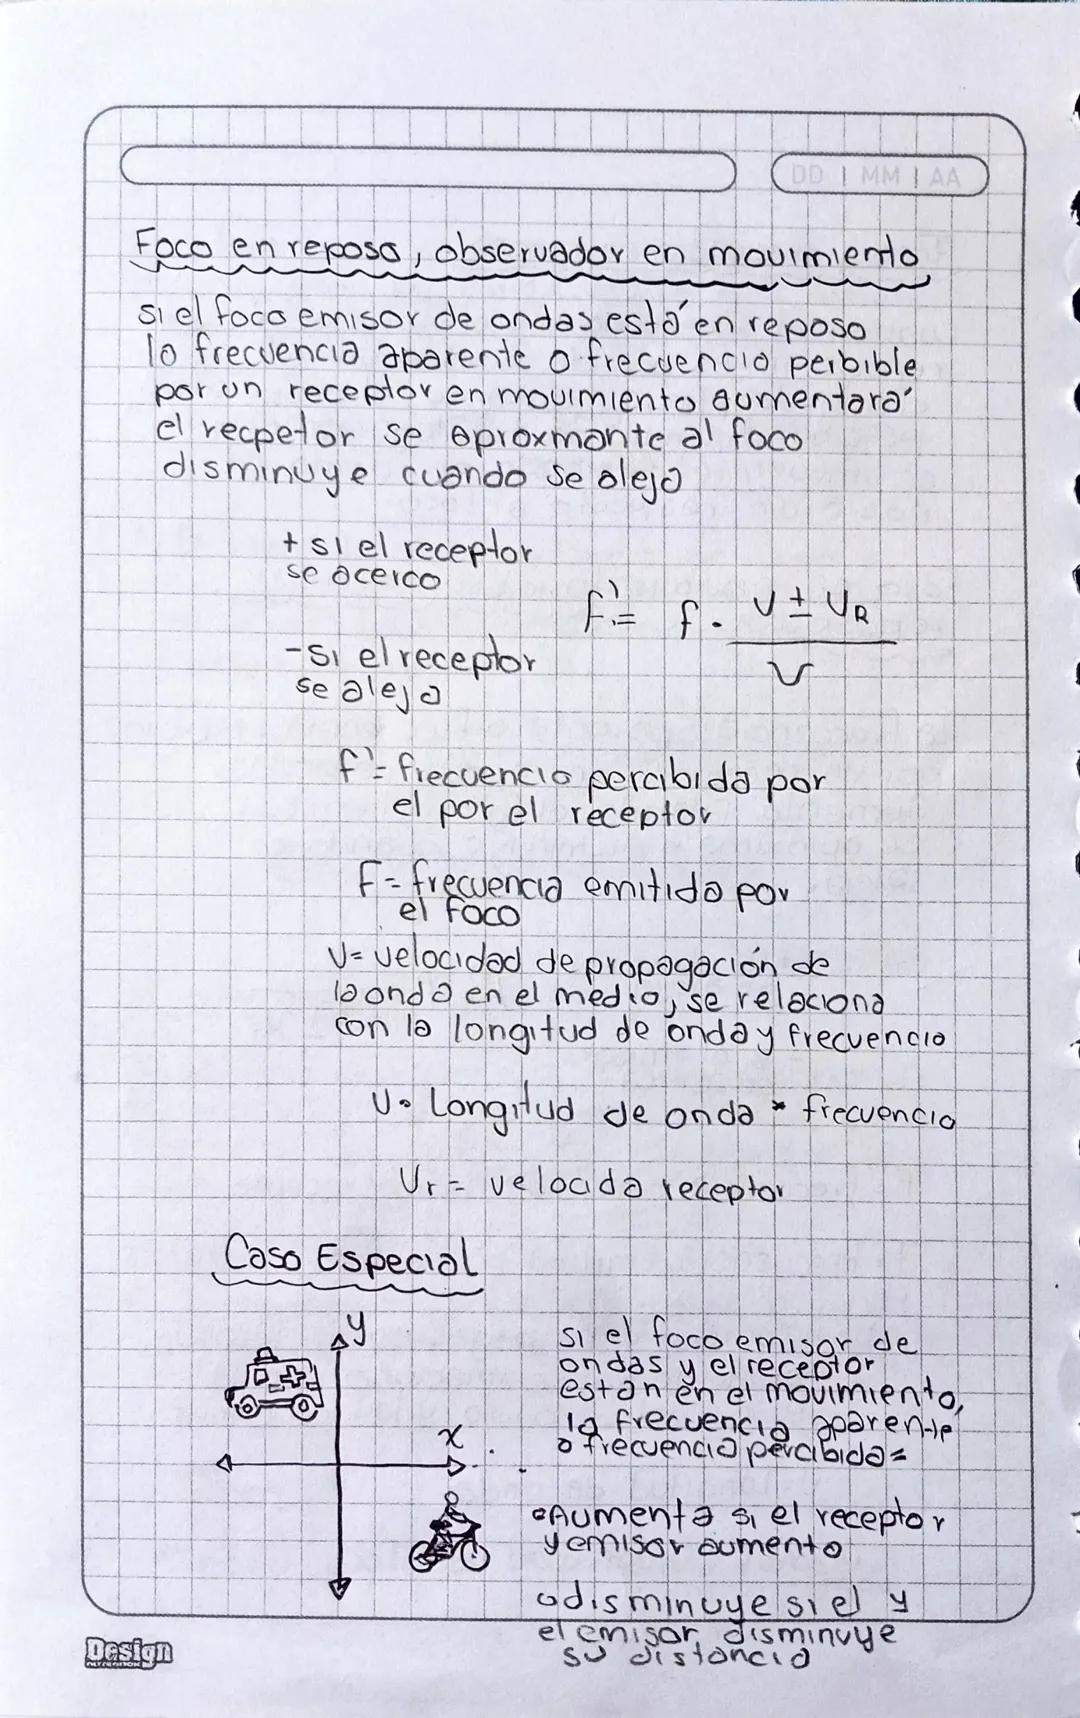 DD | MM | AA
Foco en reposo, observador en movimiento
si el foco emisor de ondas está en reposo
la frecuencia aparente o frecuencia perbible
por un receptor en movimiento aumentara
el recpetor se aproxmante al foco
disminuye cuando se aleja
+ si el receptor
se acerca
f' = f · (V ± VR) / V
- si el receptor
se aleja
f' = frecuencia percibida por
el por el receptor
F = frecuencia emitida por
el foco
V = velocidad de propagación de
la onda en el medio, se relaciona
con la longitud de onda y frecuencia
V = Longitud de onda * frecuencia
Vr = velocida receptor
Caso Especial
y
x
si el foco emisor de
ondas y el receptor
estan en el movimiento,
la frecuencia aparente
o frecuencia percibida =
• Aumenta si el receptor
y emisor aumenta
• disminuye si el y
el emisor disminuye
su distancia
Design